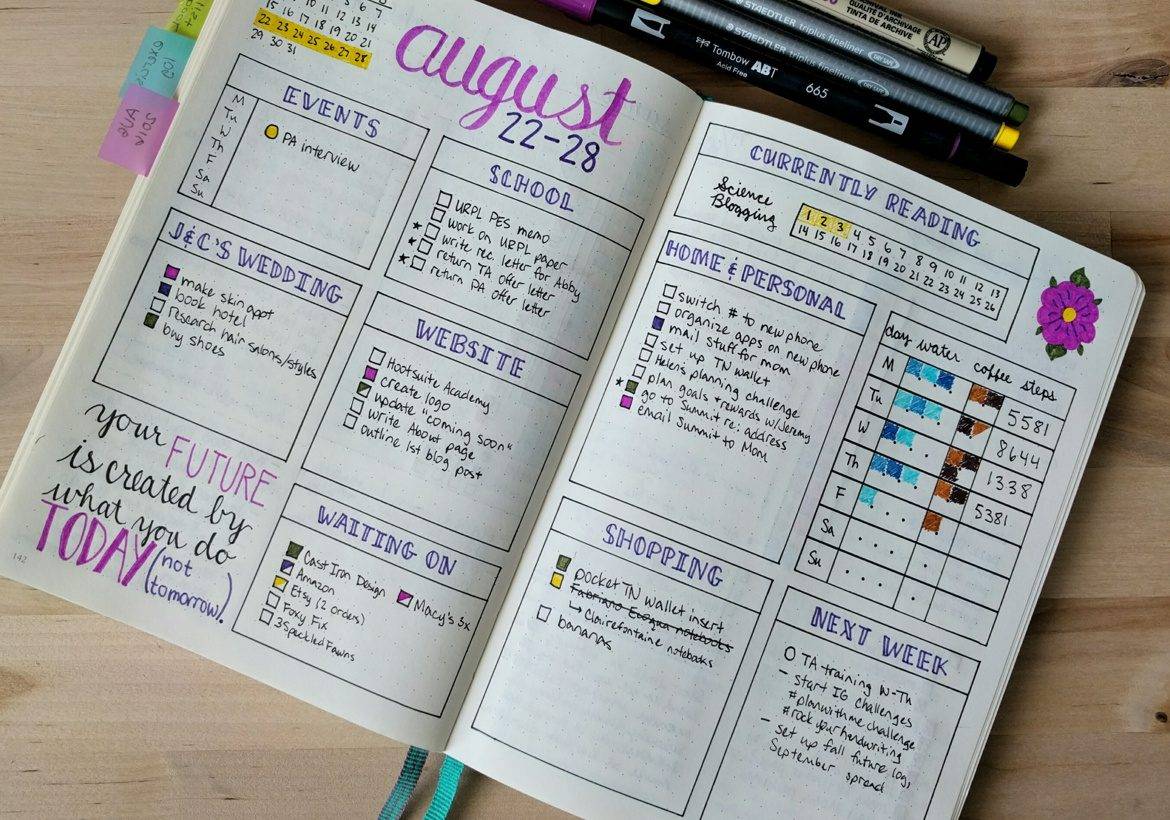 1 2 3 4 5 6 7
8 9 10 11 12 13 14
15 16 17 18 19 20 21
22 23 24 25 26 27 28
29 30 31
august
22-28
EVENTS
M
Tu
W
Th
F
Sa
Su
PA interview
SCHOOL
URPL PES memo
work on URPL paper
write rec. letter for Abby
return TA offer letter
return PA offer letter
J&C'S WEDDING
make skin appt
book hotel
research hair salons/styles
buy shoes
WEBSITE
Hootsuite Academy
create logo
update "coming soon"
write About page
outline 1st blog post
your FUTURE
is created by
what you do
TODAY (not
tomorrow).
142
WAITING ON
Cast Iron Design
Amazon
Etsy (2 orders)
Foxy Fix
3 Speckled Fawns
Macy's 3x
CURRENTLY READING
Science
Blogging
1 2 3 4 5 6 7 8 9 10 11 12 13
14 15 16 17 18 19 20 21 22 23 24 25 26
HOME & PERSONAL
switch # to new phone
organize apps on new phone
mail stuff for mom
set up TN wallet
Helen's planning challenge
plan goals + rewards w/Jeremy
go to Summit re: address
email Summit to Mom
day water coffee steps
M 5581
Tu 8644
W 1338
Th 5381
F
Sa
Su
SHOPPING
pocket TN wallet insert
Fabriano Ecoqua notebooks
↳ Clairefontaine notebooks
bananas
NEXT WEEK
O TA training W-Th
- start IG challenges
#planwithmechallenge
#rockyourhandwriting
- set up fall future log,
September spread
STAEDTLER triplus fineliner DRY SAFE
STAEDTLER triplus fineliner DRY SAFE
Tombow ABT
Acid Free
665
ARCHIVAL INK
ARCHIVAL
TINTA DE ARCHIVE
AP